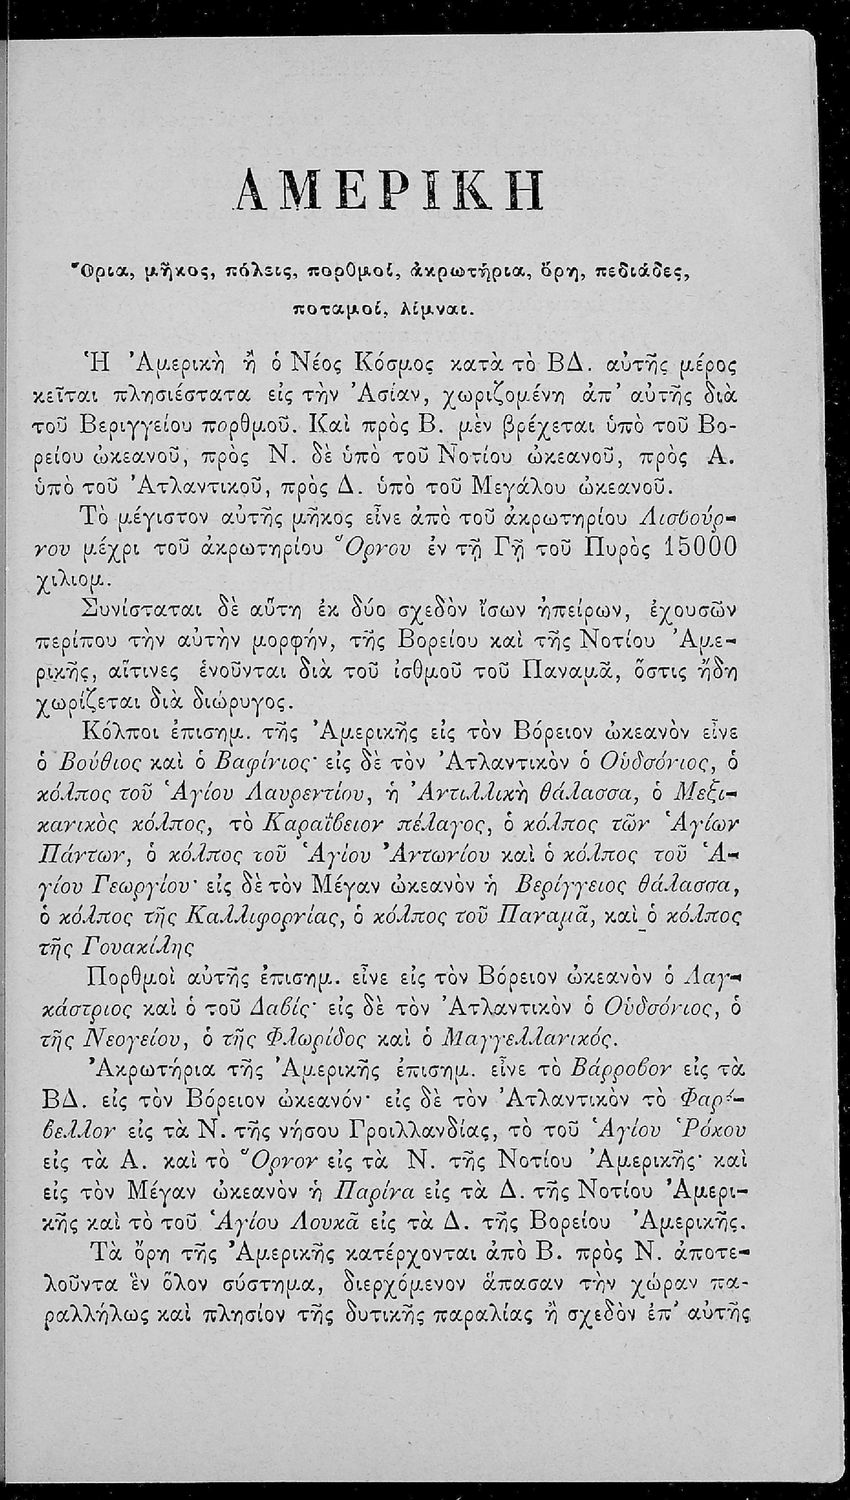 ΑΜΕΡΙΚΗ
Ὅρια, μῆκος, πόλεις, πορθμοί, ἀκρωτήρια, ὄρη, πεδιάδες,
ποταμοί, λίμναι.
Ἡ Ἀμερικὴ ἢ ὁ Νέος Κόσμος κατὰ τὸ ΒΔ. αὐτῆς μέρος
κεῖται πλησιέστατα εἰς τὴν Ἀσίαν, χωριζομένη ἀπ’ αὐτῆς διὰ
τοῦ Βεριγγείου πορθμοῦ. Καὶ πρὸς Β. μὲν βρέχεται ὑπὸ τοῦ Βο-
ρείου ὠκεανοῦ, πρὸς Ν. δὲ ὑπὸ τοῦ Νοτίου ὠκεανοῦ, πρὸς Α.
ὑπὸ τοῦ Ἀτλαντικοῦ, πρὸς Δ. ὑπὸ τοῦ Μεγάλου ὠκεανοῦ.
Τὸ μέγιστον αὐτῆς μῆκος εἶνε ἀπὸ τοῦ ἀκρωτηρίου Λισβούρ-
νου μέχρι τοῦ ἀκρωτηρίου Ὅρνου ἐν τῇ Γῇ τοῦ Πυρὸς 15000
χιλιομ.
Συνίσταται δὲ αὕτη ἐκ δύο σχεδὸν ἴσων ἠπείρων, ἐχουσῶν
περίπου τὴν αὐτὴν μορφήν, τῆς Βορείου καὶ τῆς Νοτίου Ἀμε-
ρικῆς, αἵτινες ἑνοῦνται διὰ τοῦ ἰσθμοῦ τοῦ Παναμᾶ, ὅστις ἤδη
χωρίζεται διὰ διώρυγος.
Κόλποι ἐπισημ. τῆς Ἀμερικῆς εἰς τὸν Βόρειον ὠκεανὸν εἶνε
ὁ Βούθιος καὶ ὁ Βαφίνιος· εἰς δὲ τὸν Ἀτλαντικὸν ὁ Οὐδσόνιος, ὁ
κόλπος τοῦ Ἁγίου Λαυρεντίου, ἡ Ἀντιλλικὴ θάλασσα, ὁ Μεξι-
κανικὸς κόλπος, τὸ Καραΐβειον πέλαγος, ὁ κόλπος τῶν Ἁγίων
Πάντων, ὁ κόλπος τοῦ Ἁγίου Ἀντωνίου καὶ ὁ κόλπος τοῦ Ἁ-
γίου Γεωργίου· εἰς δὲ τὸν Μέγαν ὠκεανὸν ἡ Βερίγγειος θάλασσα,
ὁ κόλπος τῆς Καλλιφορνίας, ὁ κόλπος τοῦ Παναμᾶ, καὶ ὁ κόλπος
τῆς Γουακίλης
Πορθμοὶ αὐτῆς ἐπισημ. εἶνε εἰς τὸν Βόρειον ὠκεανὸν ὁ Λαγ-
κάστριος καὶ ὁ τοῦ Δαβίς· εἰς δὲ τὸν Ἀτλαντικὸν ὁ Οὐδσόνιος, ὁ
τῆς Νεογείου, ὁ τῆς Φλωρίδος καὶ ὁ Μαγγελλανικός.
Ἀκρωτήρια τῆς Ἀμερικῆς ἐπισημ. εἶνε τὸ Βάρροβον εἰς τὰ
ΒΔ. εἰς τὸν Βόρειον ὠκεανόν· εἰς δὲ τὸν Ἀτλαντικὸν τὸ Φαρ-
βέλλον εἰς τὰ Ν. τῆς νήσου Γροιλλανδίας, τὸ τοῦ Ἁγίου Ῥόκου
εἰς τὰ Α. καὶ τὸ Ὅρνον εἰς τὰ Ν. τῆς Νοτίου Ἀμερικῆς· καὶ
εἰς τὸν Μέγαν ὠκεανὸν ἡ Παρίνα εἰς τὰ Δ. τῆς Νοτίου Ἀμερι-
κῆς καὶ τὸ τοῦ Ἁγίου Λουκᾶ εἰς τὰ Δ. τῆς Βορείου Ἀμερικῆς.
Τὰ ὄρη τῆς Ἀμερικῆς κατέρχονται ἀπὸ Β. πρὸς Ν. ἀποτε-
λοῦντα ἓν ὅλον σύστημα, διερχόμενον ἅπασαν τὴν χώραν πα-
ραλλήλως καὶ πλησίον τῆς δυτικῆς παραλίας ἢ σχεδὸν ἐπ’ αὐτῆς